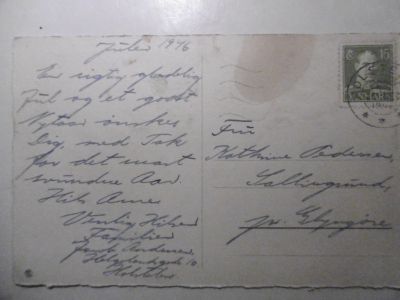 Julen 1946
En rigtig glædelig
Jul og et godt
Nytaar ønskes
Dig, med Tak
for det snart
svundne Aar.
Hils Arne
Venlig Hilsen
Familien
Holstebro
15
DANMARK
Fru
Kathrine Pedersen,
Sallingsund,
pr. Glyngøre